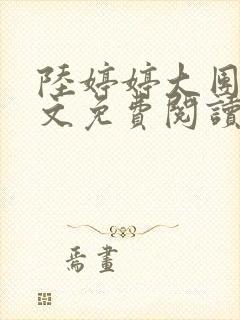 陸婷婷大團
文免費閱讀
焉畫